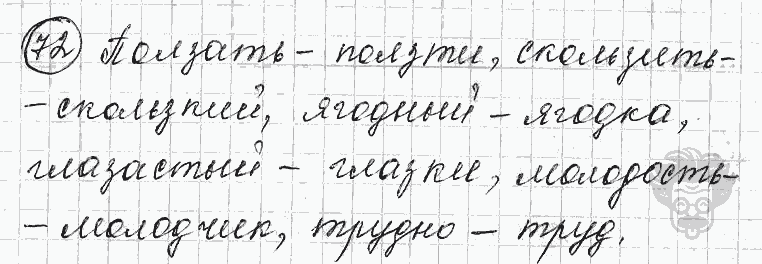 72 Ползать – ползти, скользить-
– скользкий, ягодный – ягодка,
глазастый – глазки, молодость-
– молодчик, трудно – труд.